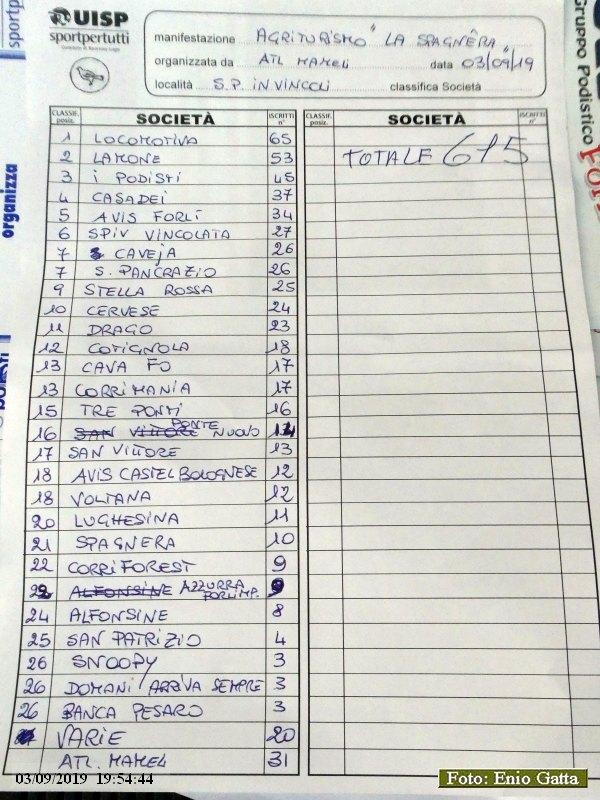 sportp
UISP
sportpertutti
manifestazione AGRITURISMO "LA SPAGNÊRA"
organizzata da ATL MAMELI data 03/09/19
località S.P. IN VINCOLI classifica Società
Gruppo Podistico
organizza
CLASSIF. posiz. SOCIETÀ ISCRITTI n° CLASSIF. posiz. SOCIETÀ ISCRITTI n°
1 LOCOMOTIVA 65
TOTALE 615
2 LAMONE 53
3 I PODISTI 45
4 CASADEI 37
5 AVIS FORLÌ 34
6 SPIV VINCOLATA 27
7 CAVEJA 26
7 S. PANCRAZIO 26
9 STELLA ROSSA 25
10 CERVESE 24
11 DRAGO 23
12 COTIGNOLA 18
13 CAVA FO 17
13 CORRIMANIA 17
15 TRE PONTI 16
16 SAN VITTORE PONTE NUOVO 14
17 SAN VITTORE 13
18 AVIS CASTEL BOLOGNESE 12
18 VOLTANA 12
20 LUGHESINA 11
21 SPAGNERA 10
22 CORRIFOREST 9
22 ALFONSINE AZZURRA FORLIMP. 9
24 ALFONSINE 8
25 SAN PATRIZIO 4
26 SNOOPY 3
26 DOMANI ARRIVA SEMPRE 3
26 BANCA PESARO 3
VARIE 20
ATL. MAMELI 31
03/09/2019 19:54:44
Foto: Enio Gatta